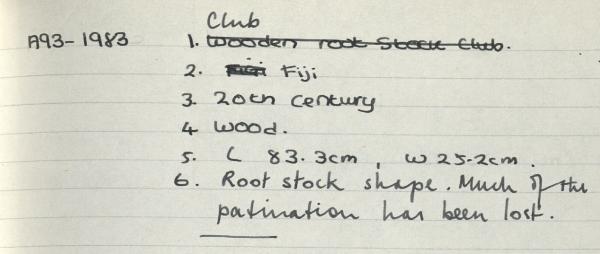 Club
A93-1983 1. Wooden root Stock Club.
2. Fiji Fiji
3. 20th Century
4 Wood.
5. L 83.3cm, W 25.2cm.
6. Root stock shape. Much of the
patination has been lost.